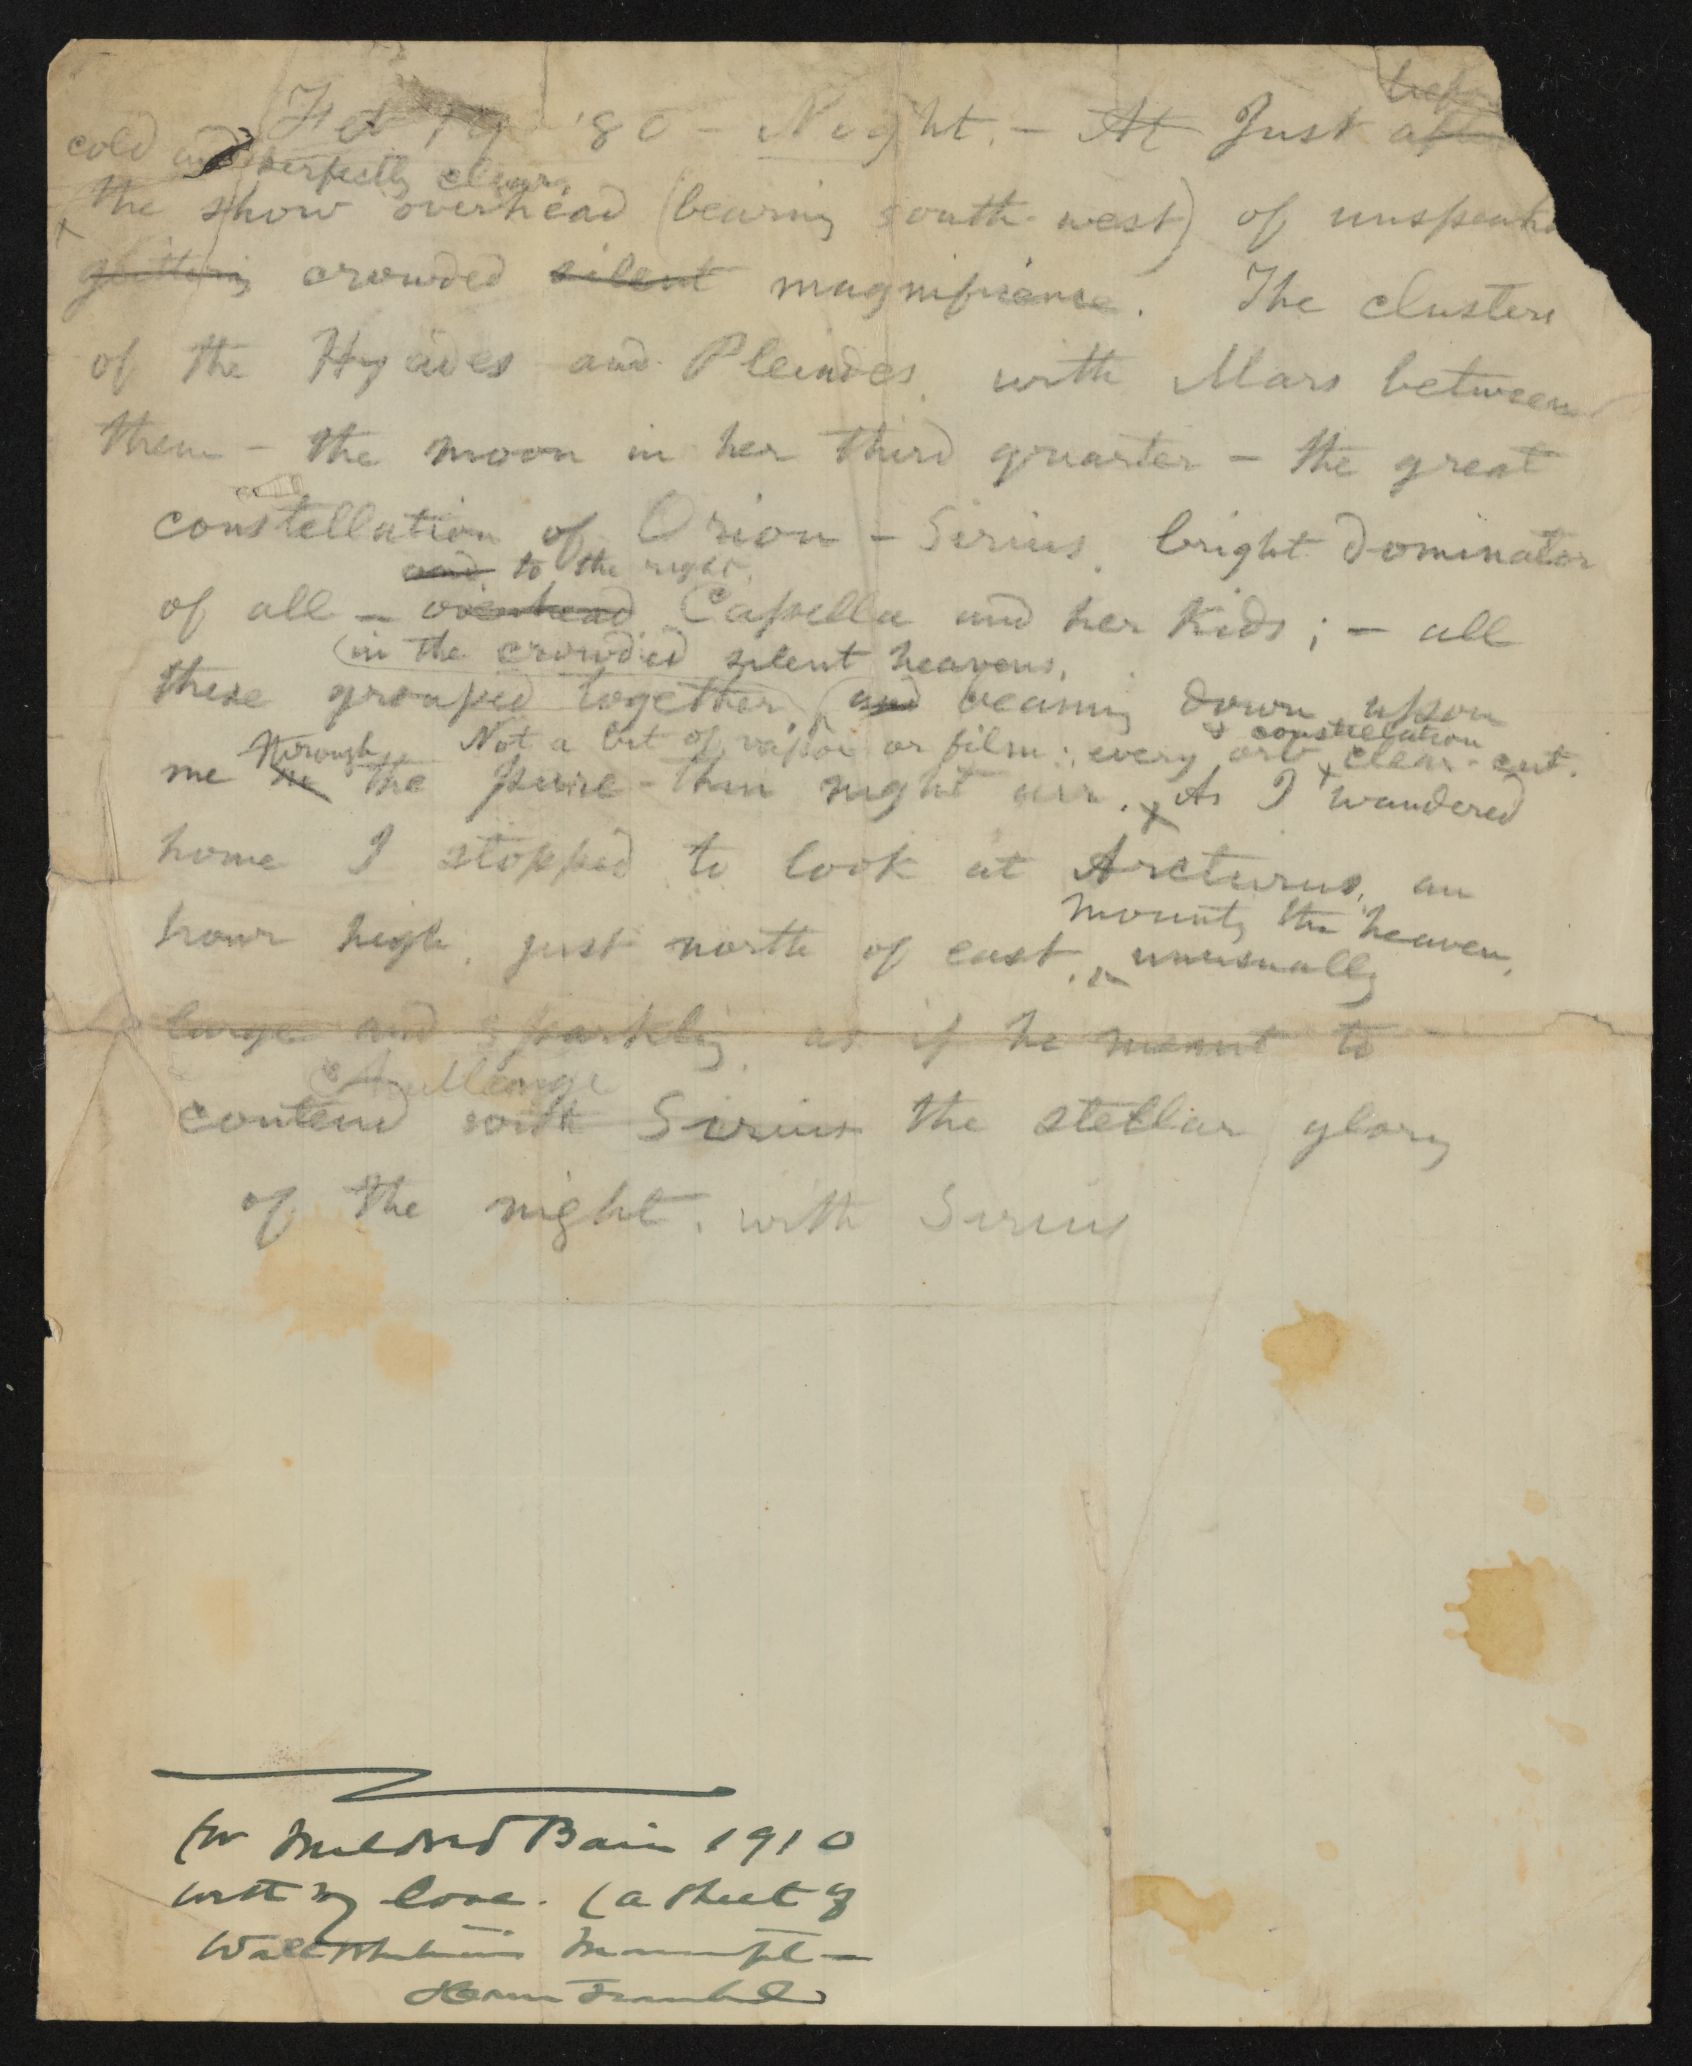 Feb 19 '80 – Night. – At Just
cold and perfectly clear,
the show overhead (bearing south-west) of
glittering crowded silent magnificence. The clusters
of the Hyades and Pleiades, with Mars between
them – the moon in her third quarter – the great
constellation of Orion – Sirius, bright dominator
and, to the right,
of all – overhead Capella and her kids; – all
(in the crowded silent heavens,
these grouped together, and beaming down upon
& constellation
through Not a bit of vapor or film; every orb clear-cut.
me in the pure-thin night air. As I wandered
home I stopped to look at Arcturus, an
mounting the heaven,
hour high, just north of east, unusually
large and sparkling, as if he meant to
challenge
contend with Sirius the stellar glory
of the night, with Sirius
for Mildred Bain 1910
with my love. (a sheet of
Walt Whitman's manuscript –
Horace Traubel